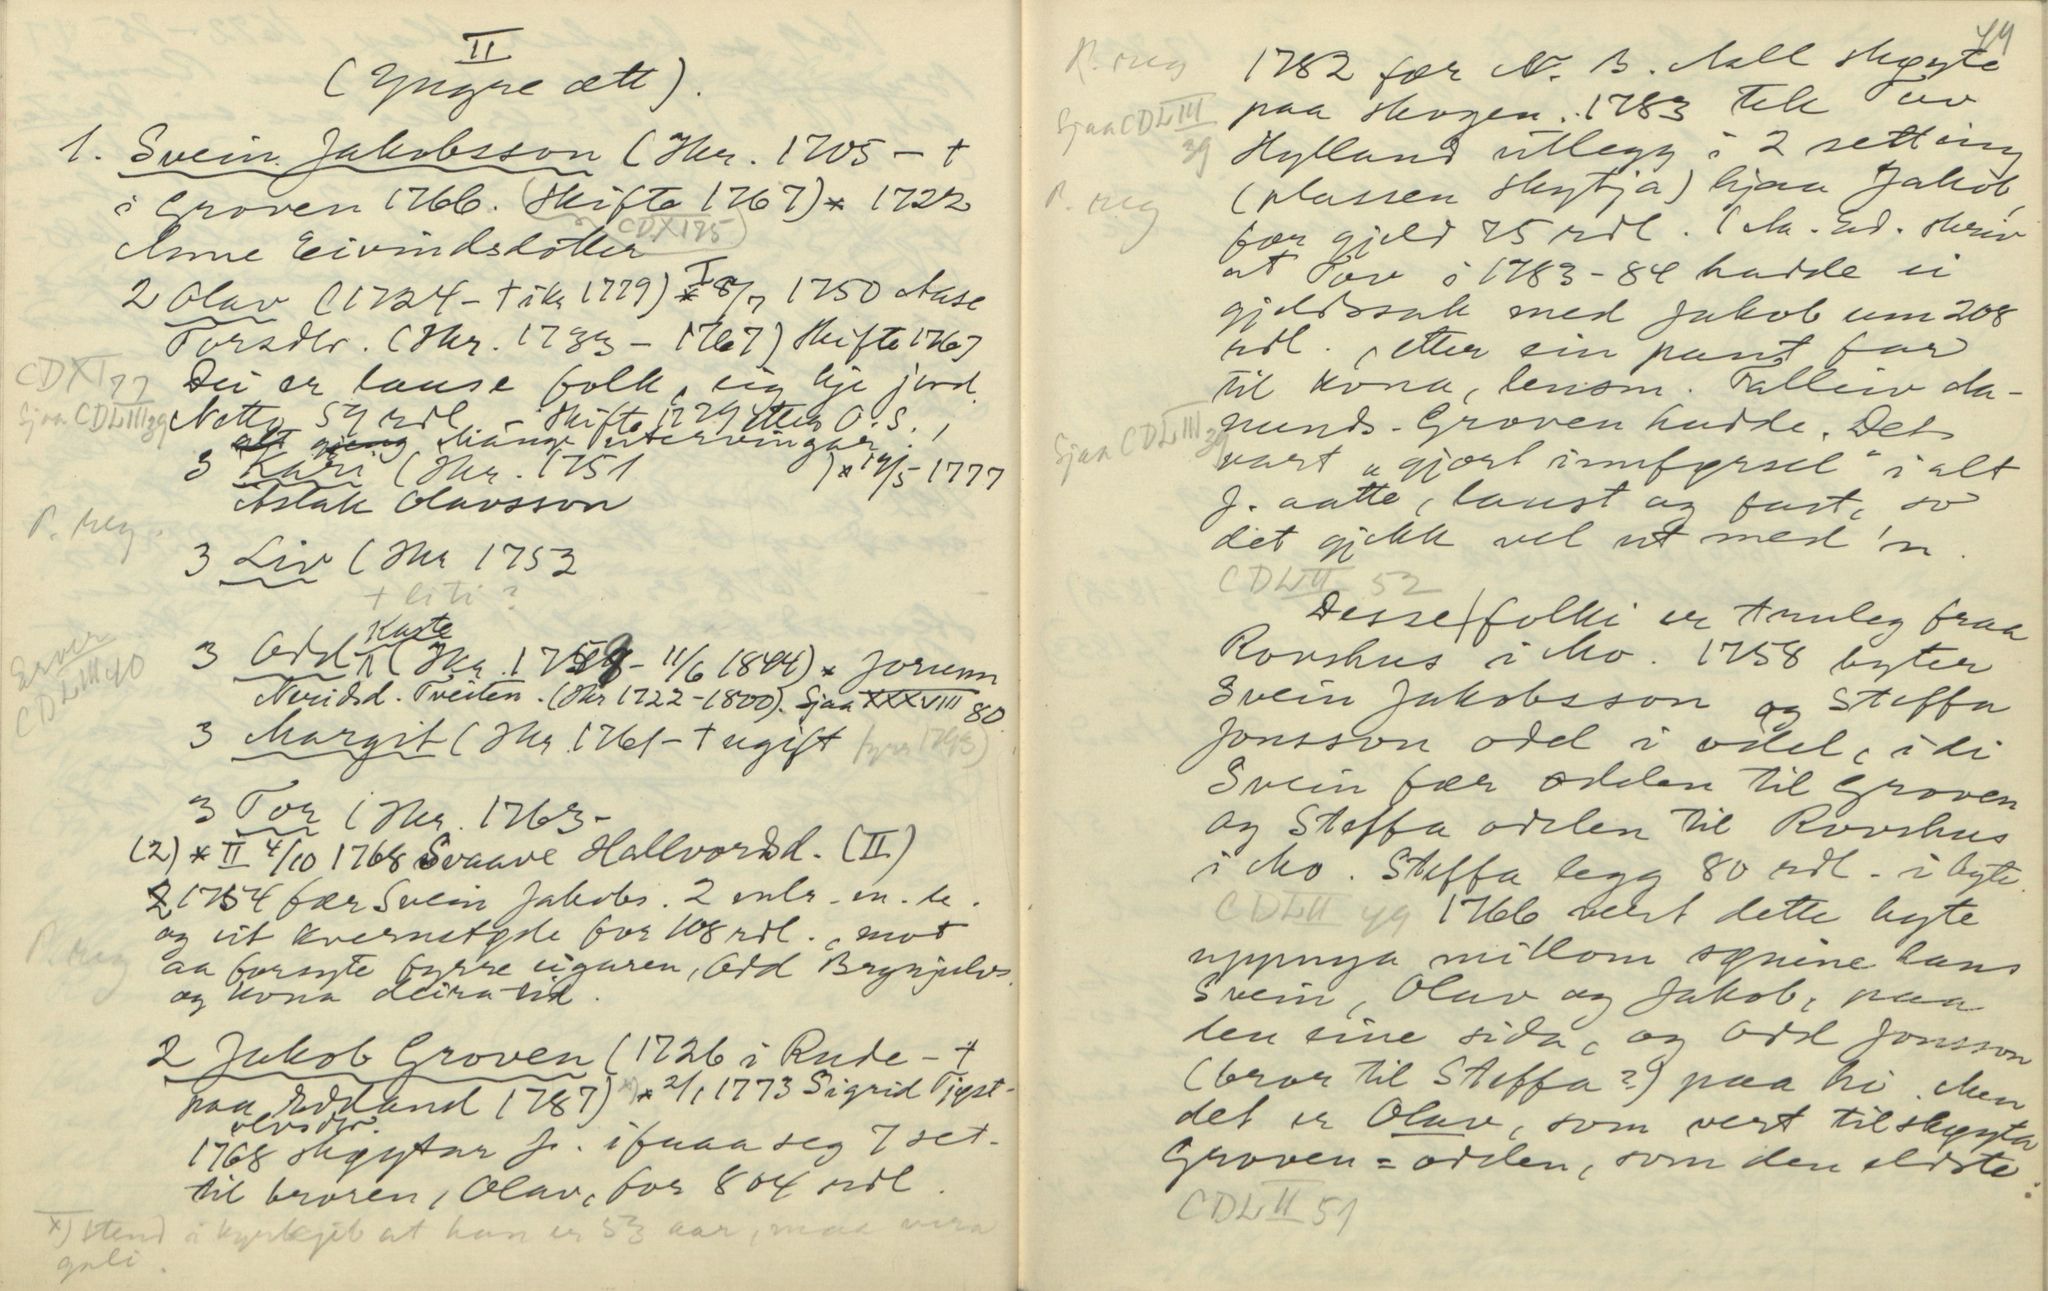 II
(Yngre ætt).
1. Svein Jakobsson (Kr. 1705 – †
i Groven 1766. (Skifte 1767) * 1722
CDXI 75)
Anne Eivindsdotter
2 Olav (1724 – † ikr 1779) * I 8/7 1750 Aase
Torsdtr. (Kr. 1733 – 1767) Skifte 1767
CDXI 77 Dei er lause folk, eig kje jord.
Sjaa CDLIII 39 Netto 59 rdl. – Skifte 1779 etter O. S.,
mange utervingar.
3 Kari (Kr. 1751 ) * 19/5 1777
Aslak Olavsson
P. reg.
3 Liv (Kr 1753
† liti?
3 Odd Kaste (Kr. 1759 – 11/6 1844) * Jorunn
Neridsd. Tveiten. (Kr 1722 – 1800). Sjaa XXXVIII 80.
Erver CDLIII 40
3 Margit (Kr. 1761 – † ugift fyrr 1793)
3 Tor (Kr. 1763 –
(2) * II 4/10 1768 Svaave Hallvordsd. (II)
1754 fær Svein Jakobs. 2 mlr. m. le.
og eit kvernstøde for 108 rdl., mot
P. reg aa forsyte fyrre eigaren, Odd Brynjulvs.
og kona deira tid.
2 Jakob Groven (1726 i Rude – †
paa Eidland 1787) x) * 2/1 1773 Sigrid Tjøst-
olvsdtr.
1768 skøytar J. ifraa seg 7 set.
til broren, Olav, for 804 rdl.
x) stend i kyrkjeb at han er 53 aar, maa vera
gali.
49
P. reg 1782 fær N. B. Aall skøyte
Sjaa CDLIII 39 paa skogen. 1783 tek Tov
Hylland utlegg i 2 setting
P. reg (plassen Skytja) hjaa Jakob,
for gjeld 75 rdl. (M. Ed. skriv
at Tov i 1783-84 hadde ei
gjeldssak med Jakob um 208
rdl., etter ein pant far
til kona, lensm. Talleiv Aa-
Sjaa CDLIII 39 munds. Groven hadde. Det
vart "gjort innførsel" i alt
J. aatte, laust og fast, so
det gjekk vel ut med 'n.
CDLII 52
Desse folki er truleg fraa
Rovshus i Mo. 1758 byter
Svein Jakobsson og Steffa
Jonsson odel i odel, i di
Svein fær odelen til Groven
og Steffa odelen til Rovshus
i Mo. Steffa legg 80 rdl. i byte.
CDLII 49 1766 vert dette byte
uppnya millom sønine hans
Svein, Olav og Jakob, paa
den eine sida, og Odd Jonsson
(bror til Steffa?) paa hi. Men
det er Olav, som vert tilskøyta
Groven = odelen, som den eldste.
CDLII 51